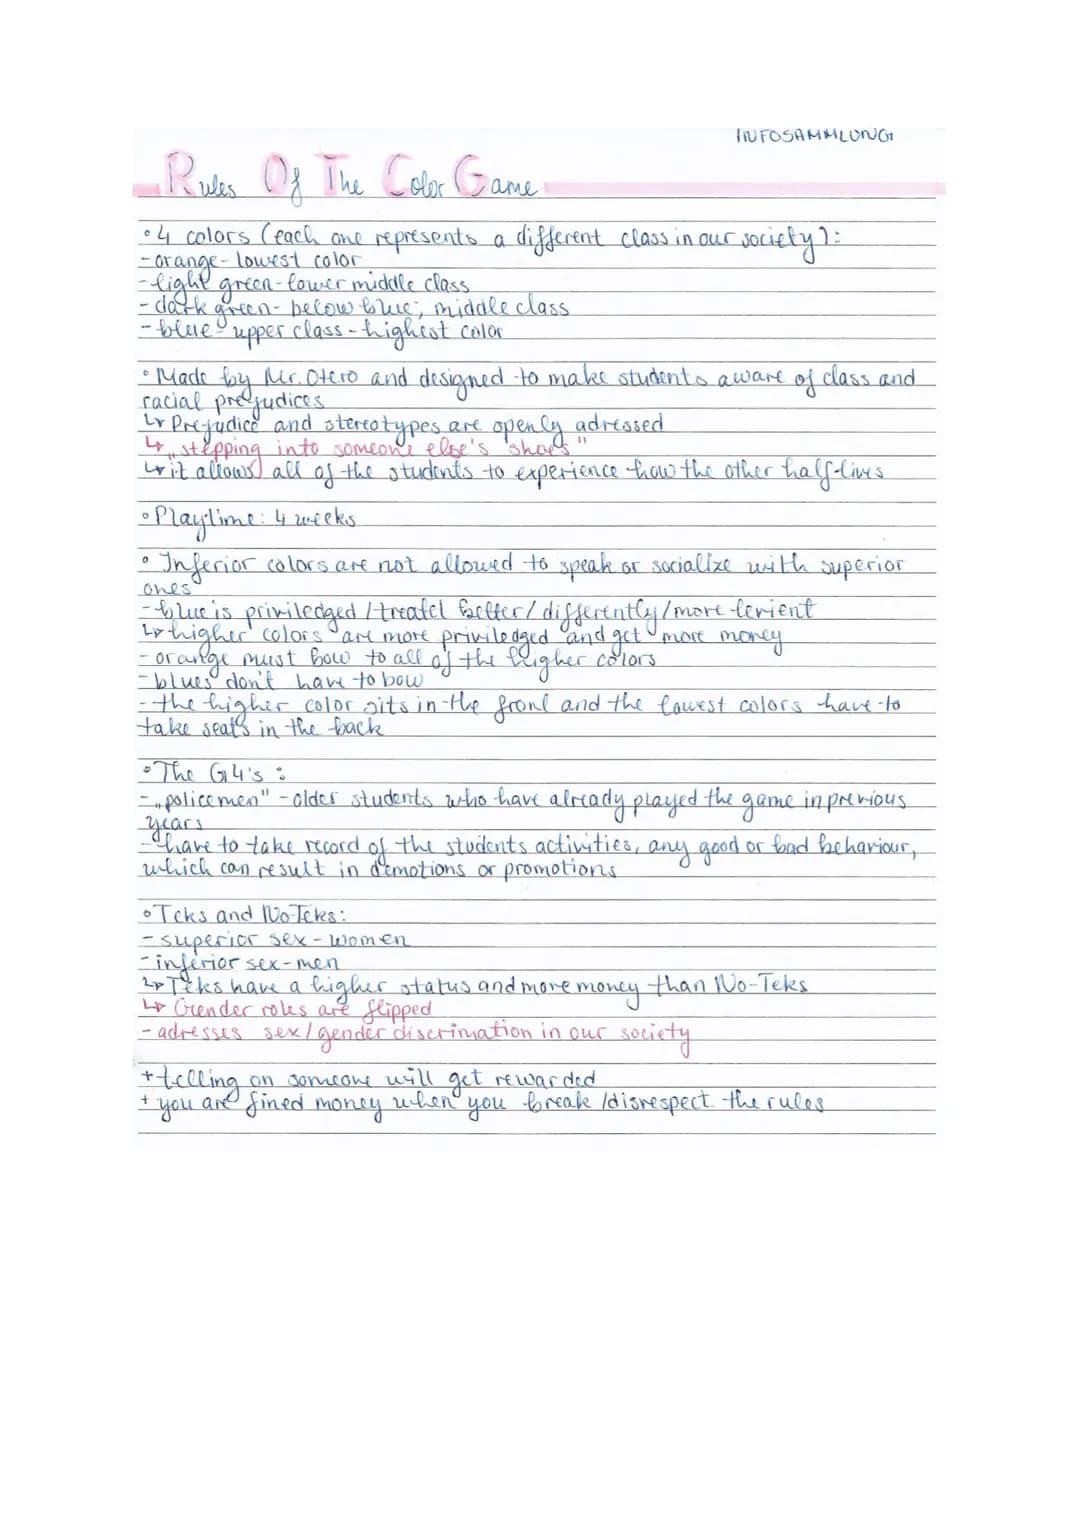 INFOSAMMLUNG
Rules Of The Color Game
• 4 colors (each one represents a different class in our society):
- orange - lowest color
- light green - lower middle class
- dark green - below blue; middle class
- blue - upper class - highest color
• Made by Mr. Otero and designed to make students aware of class and
racial prejudices
↳ Prejudice and stereotypes are openly adressed
↳ „stepping into someone else's shoes"
↳ it allows all of the students to experience how the other half-lives
• Playtime: 4 weeks
• Inferior colors are not allowed to speak or socialize with superior
ones
- blue is priviledged / treatet better / differently / more lenient
↳ higher colors are more priviledged and get more money
- orange must bow to all of the higher colors
- blues don't have to bow
- the higher color sits in the front and the lowest colors have to
take seats in the back
• The G4's :
- „policemen" - older students who have already played the game in previous
years
- have to take record of the students activities, any good or bad behaviour,
which can result in demotions or promotions
• Teks and No-Teks:
- superior sex - women
- inferior sex - men
↳ Teks have a higher status and more money than No-Teks
↳ Gender roles are flipped
- adresses sex / gender discrimation in our society
+ telling on someone will get rewarded
+ you are fined money when you break / disrespect the rules